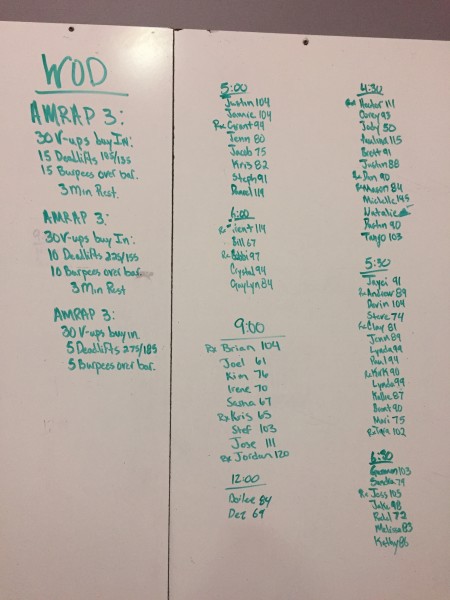 WOD
AMRAP 3:
30 V-ups buy In:
15 Deadlifts 185/135
15 Burpees over bar.
3 min Rest.
AMRAP 3:
30 V-ups buy In:
10 Deadlifts 225/155
10 Burpees over bar
3 Min Rest
AMRAP 3:
30 V-ups buy in
5 Deadlifts 275/185
5 Burpees over bar.
5:00
Justin 104
Jannie 104
Rx Grant 99
Jenn 80
Jacob 75
Kris 82
Steph 91
Daniel 114
6:00
Rx 114
Bill 67
Rx Bobbi 97
Crystal 94
Gaylyn 84
9:00
Rx Brian 104
Joel 61
Kim 76
Irene 70
Sasha 67
Rx Kris 65
Stef 103
Jose 111
Rx Jordan 120
12:00
84
Dez 69
4:30
Rx Hector 111
Corey 93
Jody 50
Paulina 115
Brett 91
Justin 88
Rx Dan 90
Rx Mason 84
Michelle 145
Natalie
Dustin 90
Tango 103
5:30
Jayci 91
Rx Andrew 89
Devin 104
Steve 74
Rx Clay 81
Jenn 89
Lynda 99
Paul 94
Rx Kirk 90
Lynda 99
Kellie 87
Brant 90
Mari 75
Rx 102
6:30
103
Sandra 79
Rx Joss 105
Jake 98
72
Melissa 83
Kathy 86